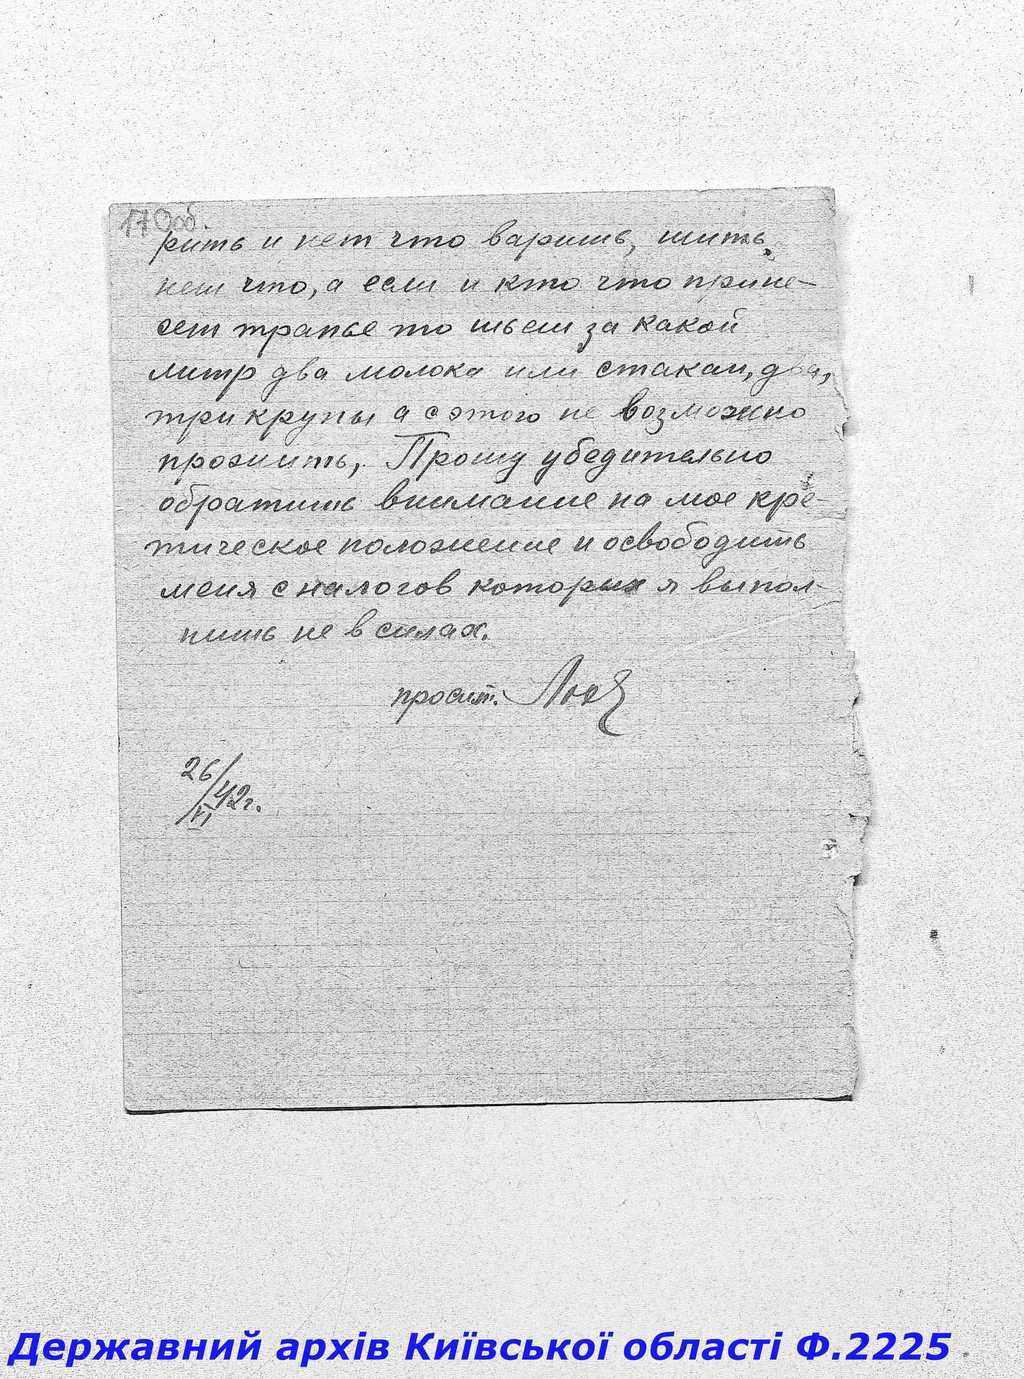 170об.
рить и нет что варить, шить
нет что, а если и кто что прине-
сет трапье то шьеш за какой
литр два молока или стакан, два,
три крупы а с этого не возможно
прожить,. Прошу убедительно
обратить внимание на мое кре-
тическое положение и освободить
меня с налогов которых я выпол-
нить не в силах.
просит.
26/VI 42г.
Державний архів Київської області Ф.2225